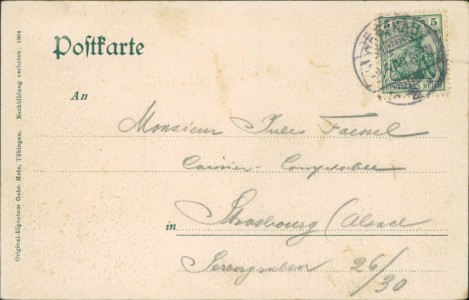 Postkarte
5 5
An
Monsieur Jules
Caissier-Comptable
in Strasbourg (Alsace
26/30
Original-Eigentum Gebr. Metz, Tübingen. Nachbildung verboten. 1904